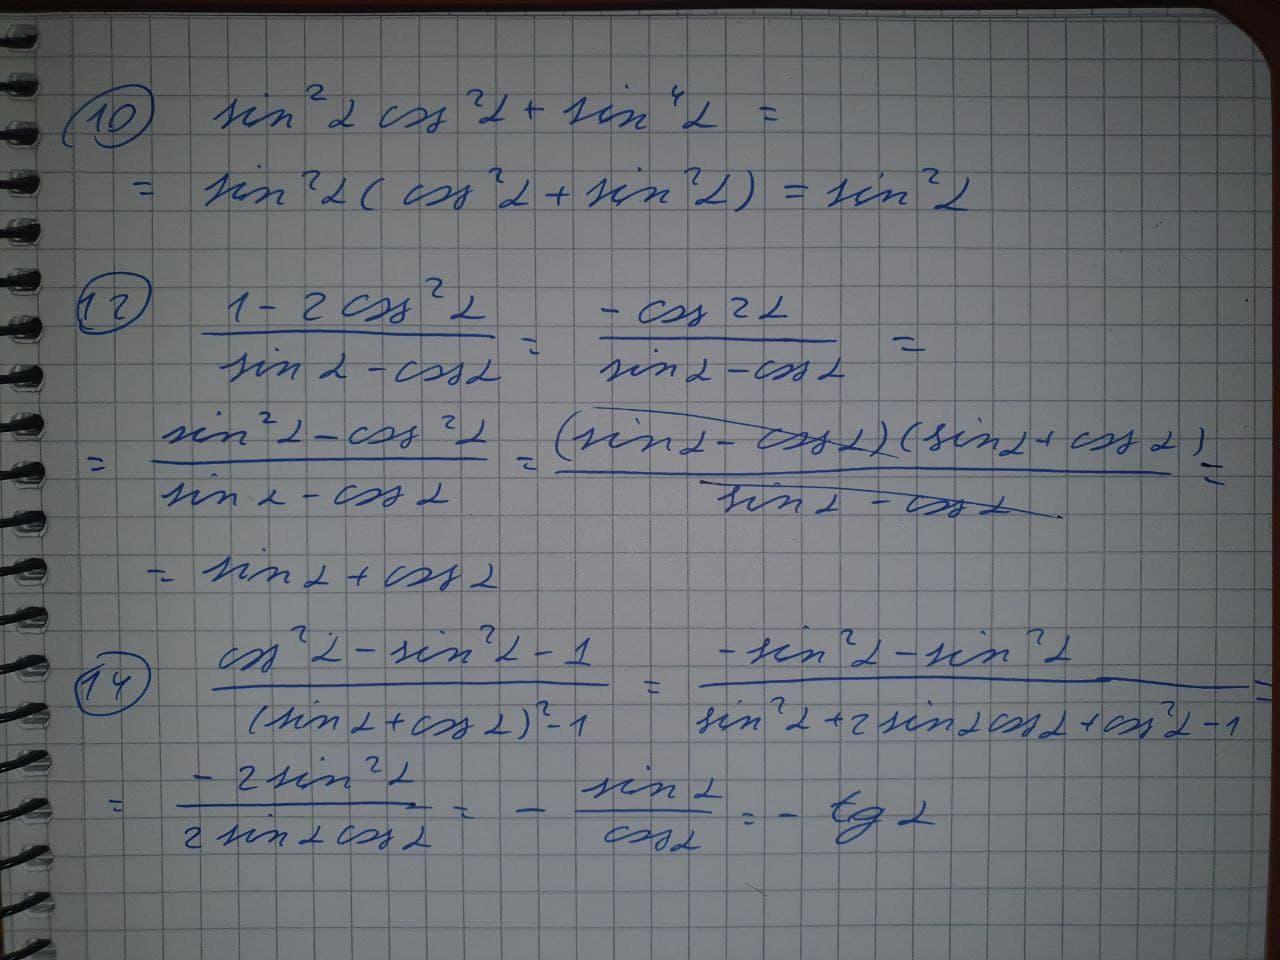 10 sin²α cos²α + sin⁴α =
= sin²α (cos²α + sin²α) = sin²α
12 (1 - 2cos²α)/(sin α - cos α) = (-cos 2α)/(sin α - cos α) =
= (sin²α - cos²α)/(sin α - cos α) = ((sin α - cos α)(sin α + cos α))/(sin α - cos α) =
= sin α + cos α
14 (cos²α - sin²α - 1)/((sin α + cos α)² - 1) = (-sin²α - sin²α)/(sin²α + 2 sin α cos α + cos²α - 1) =
= (-2 sin²α)/(2 sin α cos α) = - (sin α)/(cos α) = - tg α